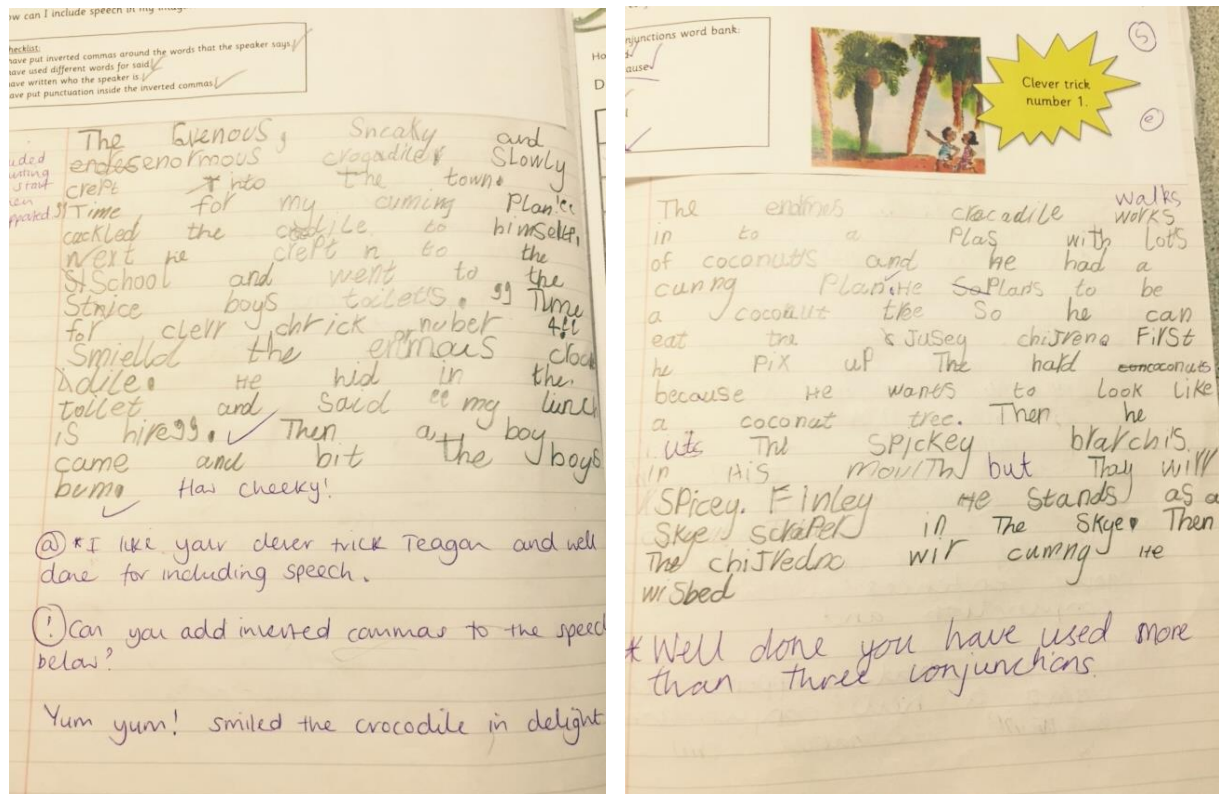 ow can I include speech in my
hecklist:
have put inverted commas around the words that the speaker says.
have used different words for said
have written who the speaker is
have put punctuation inside the inverted commas
The Gvenous, Sneaky and
enormous crocadile Slowly
crept into the town.
Time for my cuming Plan
cackled the to himself,
next He crept n to the
School and went to the
Strice boys toilets. 99 Time
for clevr chrick nuber 4!!
Smielld the enrmous croc
Adile. He hid in the.
toilet and said 66 my lunch
is hire99. Then a boy
came and bit the boys
bum. How cheeky!
@ *I like your clever trick Teagan and well
done for including speech.
! Can you add inverted commas to the speech
below?
Yum yum! smiled the crocodile in delight
Ho
D
njunctions word bank:
d
ause
Clever trick
number 1.
S
e
walks
The enrmes crocadile works
in to a Plas with lots
of coconutts and he had a
cunng Plan. He So Plans to be
a coconut tree So he can
eat the Jusey chiJrena First
he Pix up The hard coconuts
because He wants to Look Like
a coconut tree. Then he
uts The SPickey branchis
in His mouth but Thay will
SPicey. Finley He Stands as a
Skye scraper in The Skye. Then
The chiJredno wir cumng He
wisbed
* Well done you have used more
than three conjunctions.